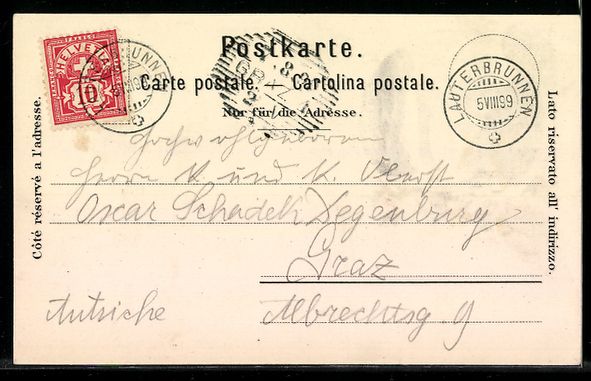 Postkarte.
Carte postale. — Cartolina postale.
Nur für die Adresse.
Côté réservé a l'adresse.
Lato riservato all' indirizzo.
HELVETIA
10
LAUTERBRUNNEN
LAUTERBRUNNEN
5VIII99
Hochwohlgeboren
Herrn K und K. Oberst
Oscar Schadek Degenburg
Graz
Autriche Albrechtsg 9